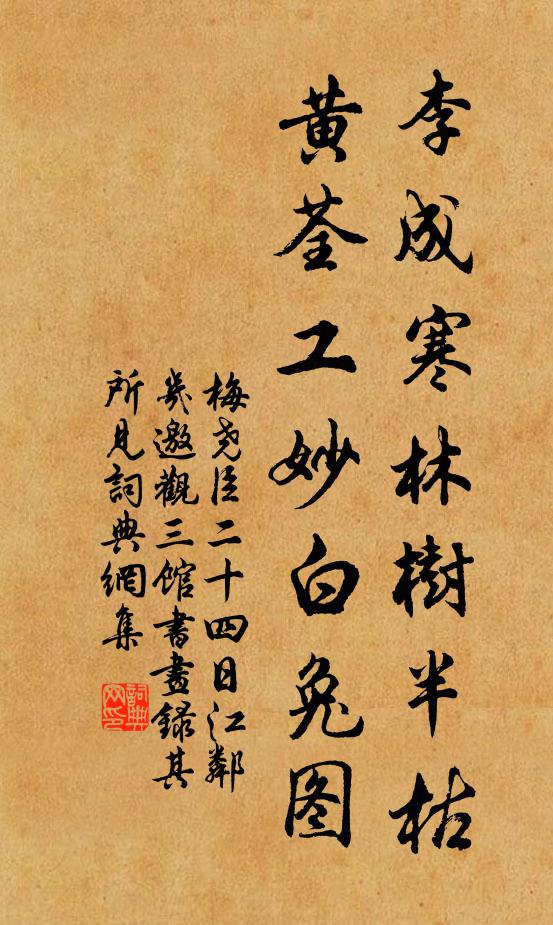 李成寒林樹半枯
黄荃工妙白兔图
梅尧臣二十四日江鄰
幾邀觀三館書畫録其
所見詞典網集
詞典
网印